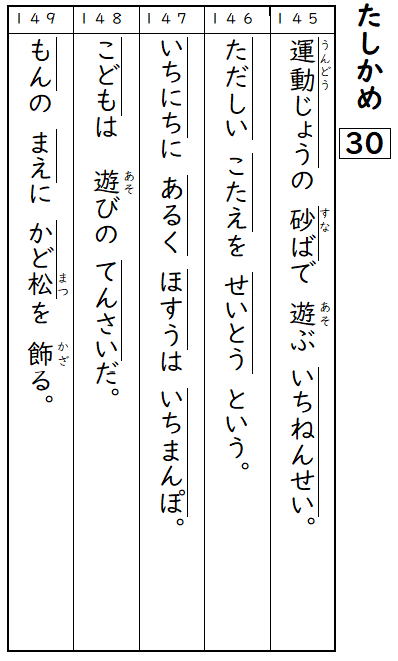 たしかめ 30
145
運動じょうの 砂ばで 遊ぶ いちねんせい。
うんどう
すな
あそ
146
ただしい こたえを せいとう という。
147
いちにちに あるく ほすうは いちまんぽ。
148
こどもは 遊びの てんさいだ。
あそ
149
もんの まえに かど松を 飾る。
まつ
かざ